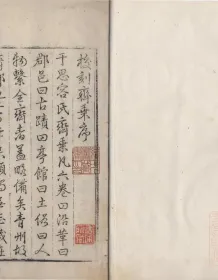 校刻齊乘序
于思容氏齊乘凡六卷曰沿革曰
郡邑曰古蹟曰亭館曰土俗曰人
物繫全齊者蓋略備矣青州故